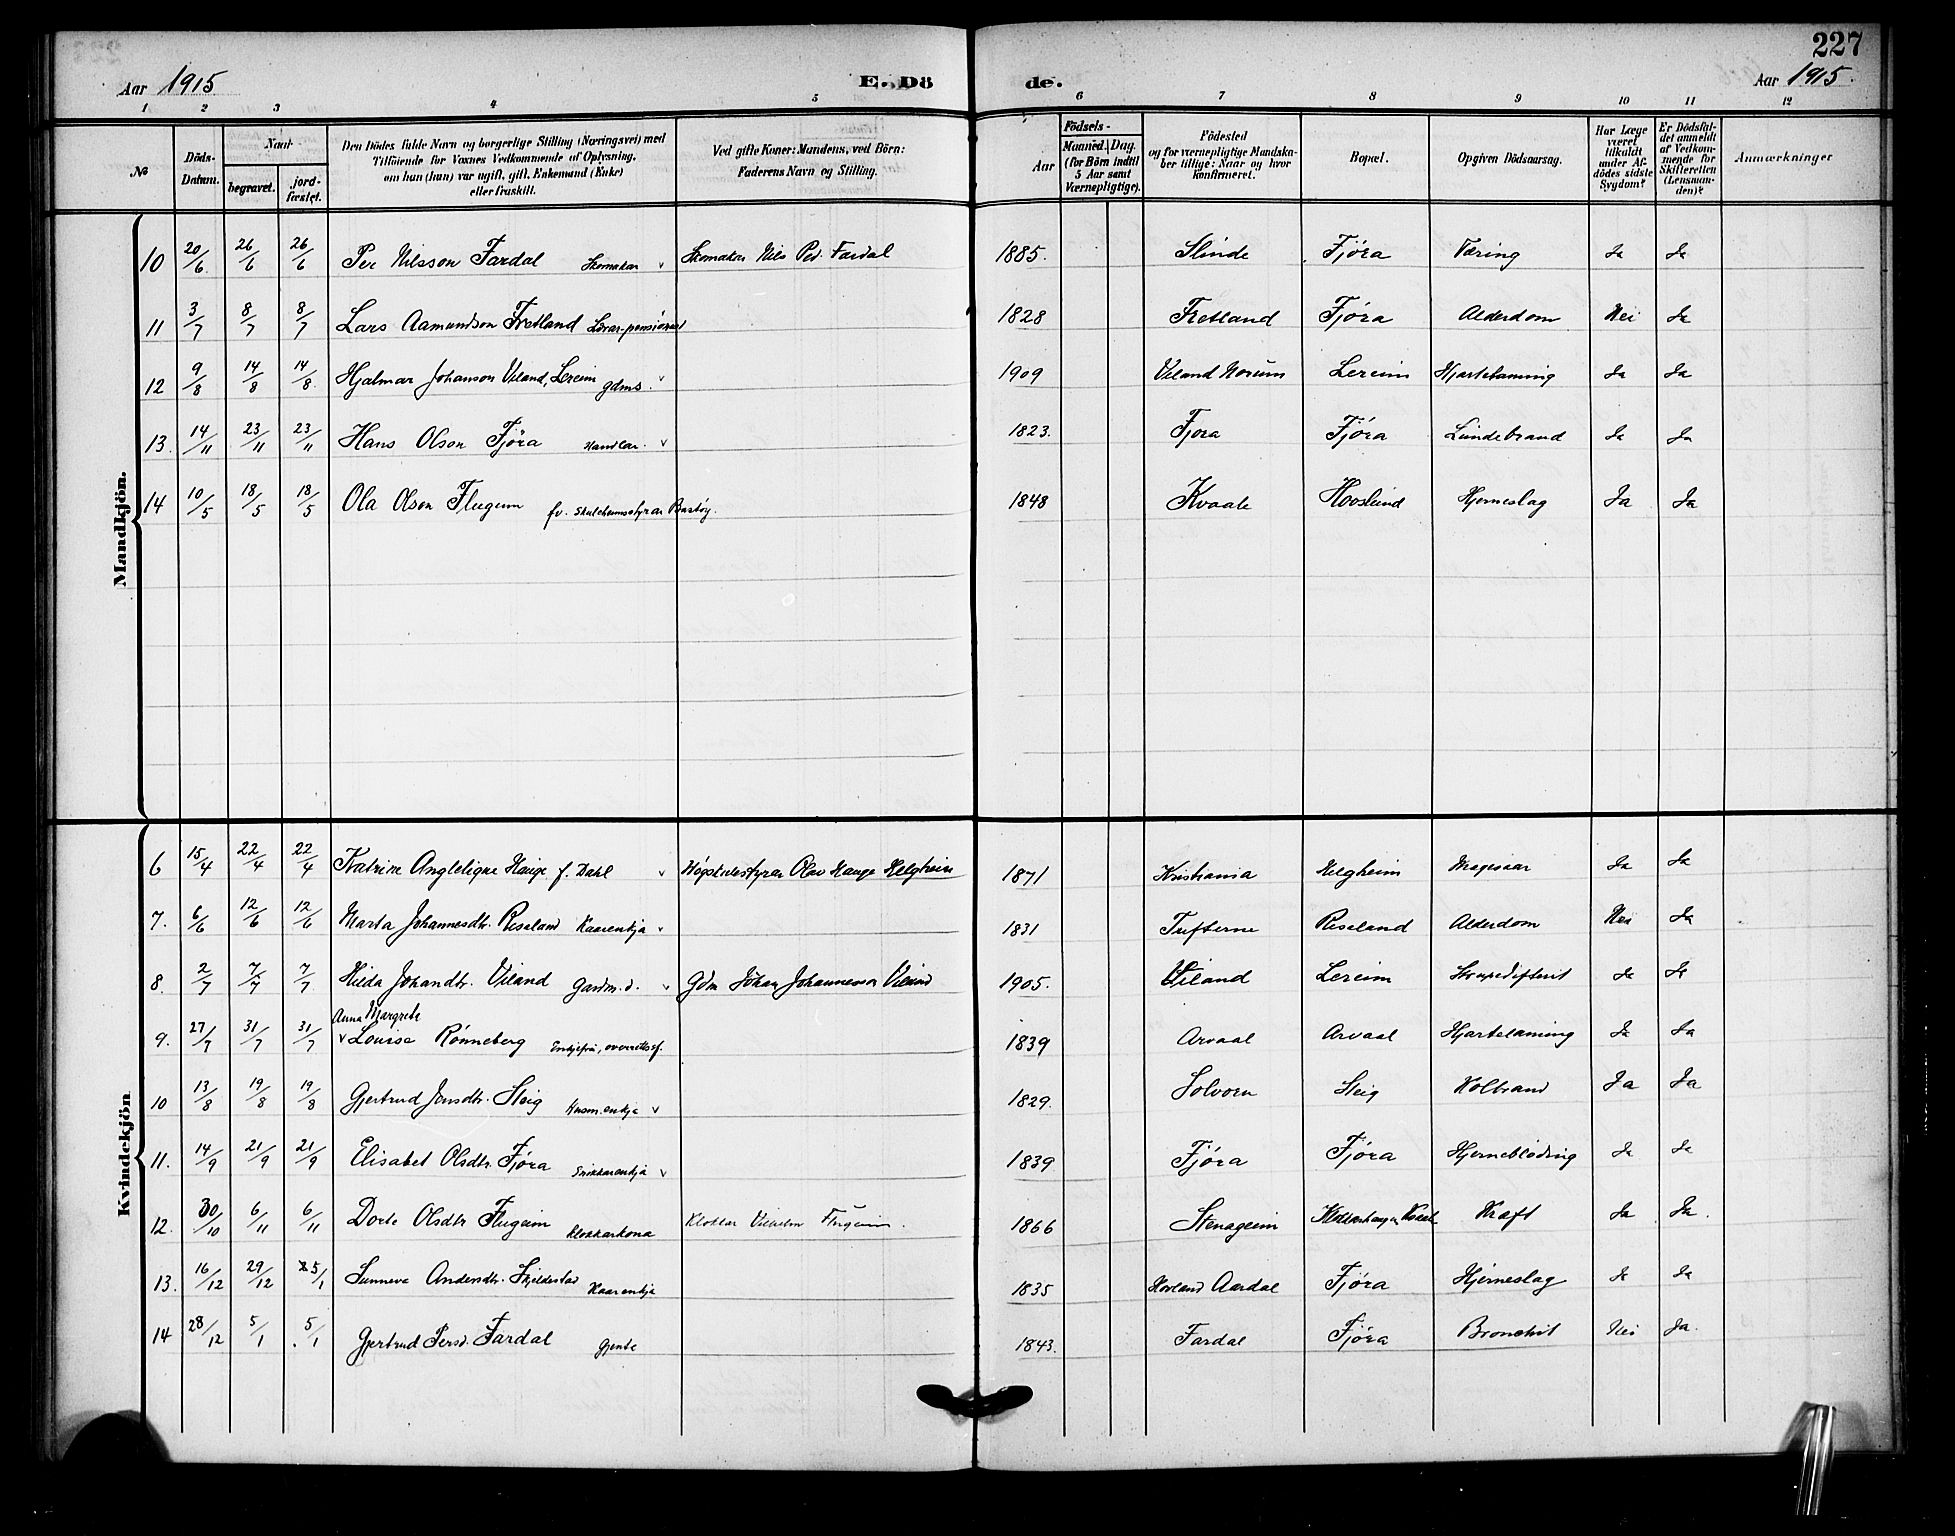 227
Aar 1915 E. Dö de. Aar 1915.
1 2 3 4 5 6 7 8 9 10 11 12
№ Döds-Datum. Naar begravet. jord-fæstet. Den Dödes fulde Navn og borgerlige Stilling (Næringsvei) med Tilföiende for Voxnes Vedkommende af Oplysning, om han (hun) var ugift, gift, Enkemand (Enke) eller fraskilt. Ved gifte Koner: Mandens, ved Börn: Faderens Navn og Stilling. Födsels- Aar Maaned. Dag. (for Börn indtil 5 Aar samt Værnepligtige). Födested og for værnepligtige Mandskaber tillige: Naar og hvor konfirmeret. Bopæl. Opgiven Dödsaarsag. Har Læge været tilkaldt under Afdödes sidste Sygdom? Er Dödsfaldet anmeldt af Vedkommende for Skifteretten (Lensmanden)? Anmærkninger
Mandkjön.
10 20/6 26/6 26/6 Per Nilsson Fardal Skomakar v Skomakar Nils Ped. Fardal 1885. Slinde Fjøra Tæring Ja Ja
11 3/7 8/7 8/7 Lars Aamundson Fretland Lærar-pensionist 1828 Fretland Fjøra Alderdom Nei Ja
12 9/8 14/8 14/8. Hjalmar Johanson Viland, Lereim gdms. v 1909 Viland Norum Lereim Hjartelaming Ja Ja
13. 14/11 23/11 23/11 Hans Olson Fjøra Handlar. v 1823. Fjøra Fjøra Lundebrand Ja Ja
14 10/5 18/5 18/5 Ola Olson Flugum fv. Skuleheimsstyrar Bastøy. 1848 Kvaale Hovslund Hjerneslag Ja Ja
Kvindekjön
6 15/4 22/4 22/4 Katrine Angleligne Hauge f. Dahl v Høgskulestyrar Olav Hauge Helgheim 1871 Kristiania Helgheim Magesaar Ja Ja
7. 6/6 12/6 12/6 Marta Johannesdtr. Riseland Kaarenkja v 1831 Tufterne Riseland Alderdom Nei Ja
8. 2/7 7/7 7/7 Hilda Johandtr. Viland Gardm. d. v Gdm Johan Johannesson Viland 1905. Viland Lereim Strupedifterit Ja Ja
Anna Margrete
9. 27/7 31/7 31/7 v Louise Rønneberg Enkjefru, overrettssf. 1839 Arvaal Arvaal Hjartelaming Ja Ja
10 13/8 19/8 19/8 Gjertrud Jonsdtr. Steig Husm. enkja v 1829. Solvorn Steig Kolbrand Ja Ja
11. 14/9 21/9 21/9 Elisabet Olsdtr. Fjøra Snikkarenkja v 1839 Fjøra Fjøra Hjerneblöding Ja Ja
12. 30/10 6/11 6/11 Dorte Olsdtr Flugeim Klokkarkona Klokkar Vilhelm Flugeim. 1866 Stenageim Klokkarhaugen Kvaale Kraft Ja Ja.
13. 16/12 29/12 5/1 Sunneva Andersdtr. Skjeldestad Kaarenkja 1835 Hovland Aardal Fjøra Hjerneslag Ja Ja
14 28/12 5/1 5/1 Gjertrud Persd. Fardal Gjente 1843. Fardal Fjøra Bronchit Nei Ja.